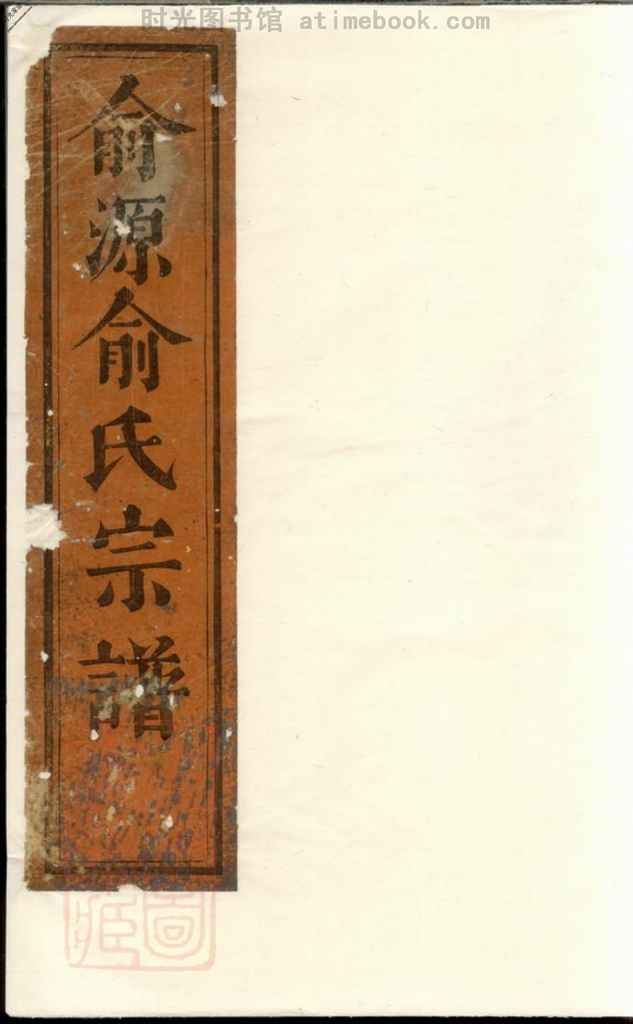 时光图书馆 atimebook.com
俞源俞氏宗譜